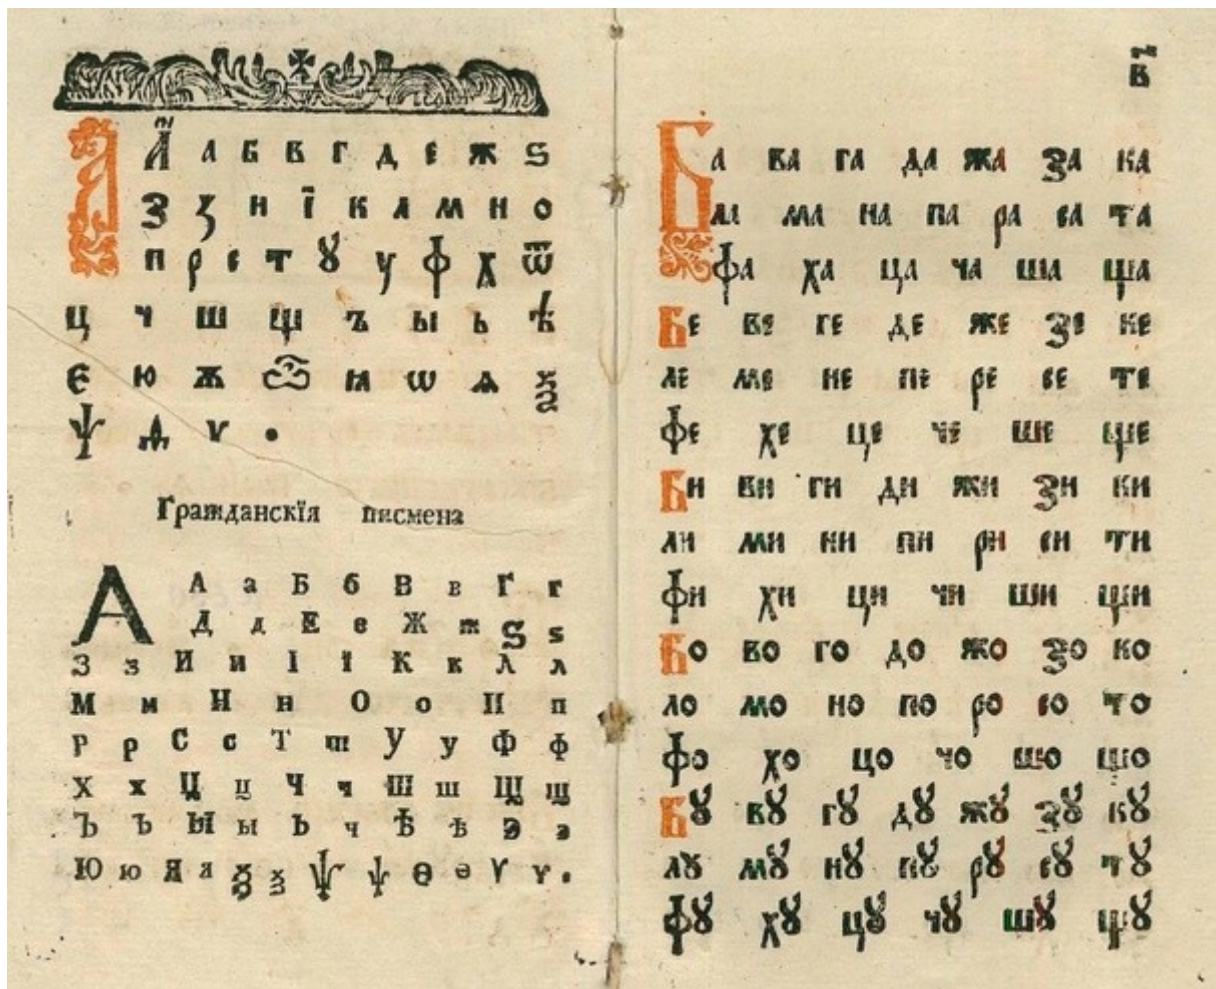 А а б в г д е ж ѕ
З ꙁ и ї к л м н о
п р с т ꙋ у ф х ѿ
ц ч ш щ ъ ы ь ѣ
є ю ѫ ꙗ ѡ ѧ ѯ
ѱ ѵ .
Гражданскїя писмена
А А а Б б В в Г г
Д д Е е Ж ж Ѕ ѕ
З з И и І ї К к Л л
М м Н н О о П п
Р р С с Т т У у Ф ф
Х х Ц ц Ч ч Ш ш Щ щ
Ъ ъ Ы ы Ь ь Ѣ ѣ Э э
Ю ю Я я Ѯ ѯ Ѱ ѱ Ѳ ѳ Ѵ ѵ .
в҃
Ба ва га да жа за ка
ла ма на па ра са та
фа ха ца ча ша ща
Бе ве ге де же зе ке
ле ме не пе ре се те
фе хе це че ше ще
Би ви ги ди жи зи ки
ли ми ни пи ри си ти
фи хи ци чи ши щи
Бо во го до жо зо ко
ло мо но по ро со то
фо хо цо чо шо що
Бꙋ вꙋ гꙋ дꙋ жꙋ зꙋ кꙋ
лꙋ мꙋ нꙋ пꙋ рꙋ сꙋ тꙋ
фꙋ хꙋ цꙋ чꙋ шꙋ щꙋ